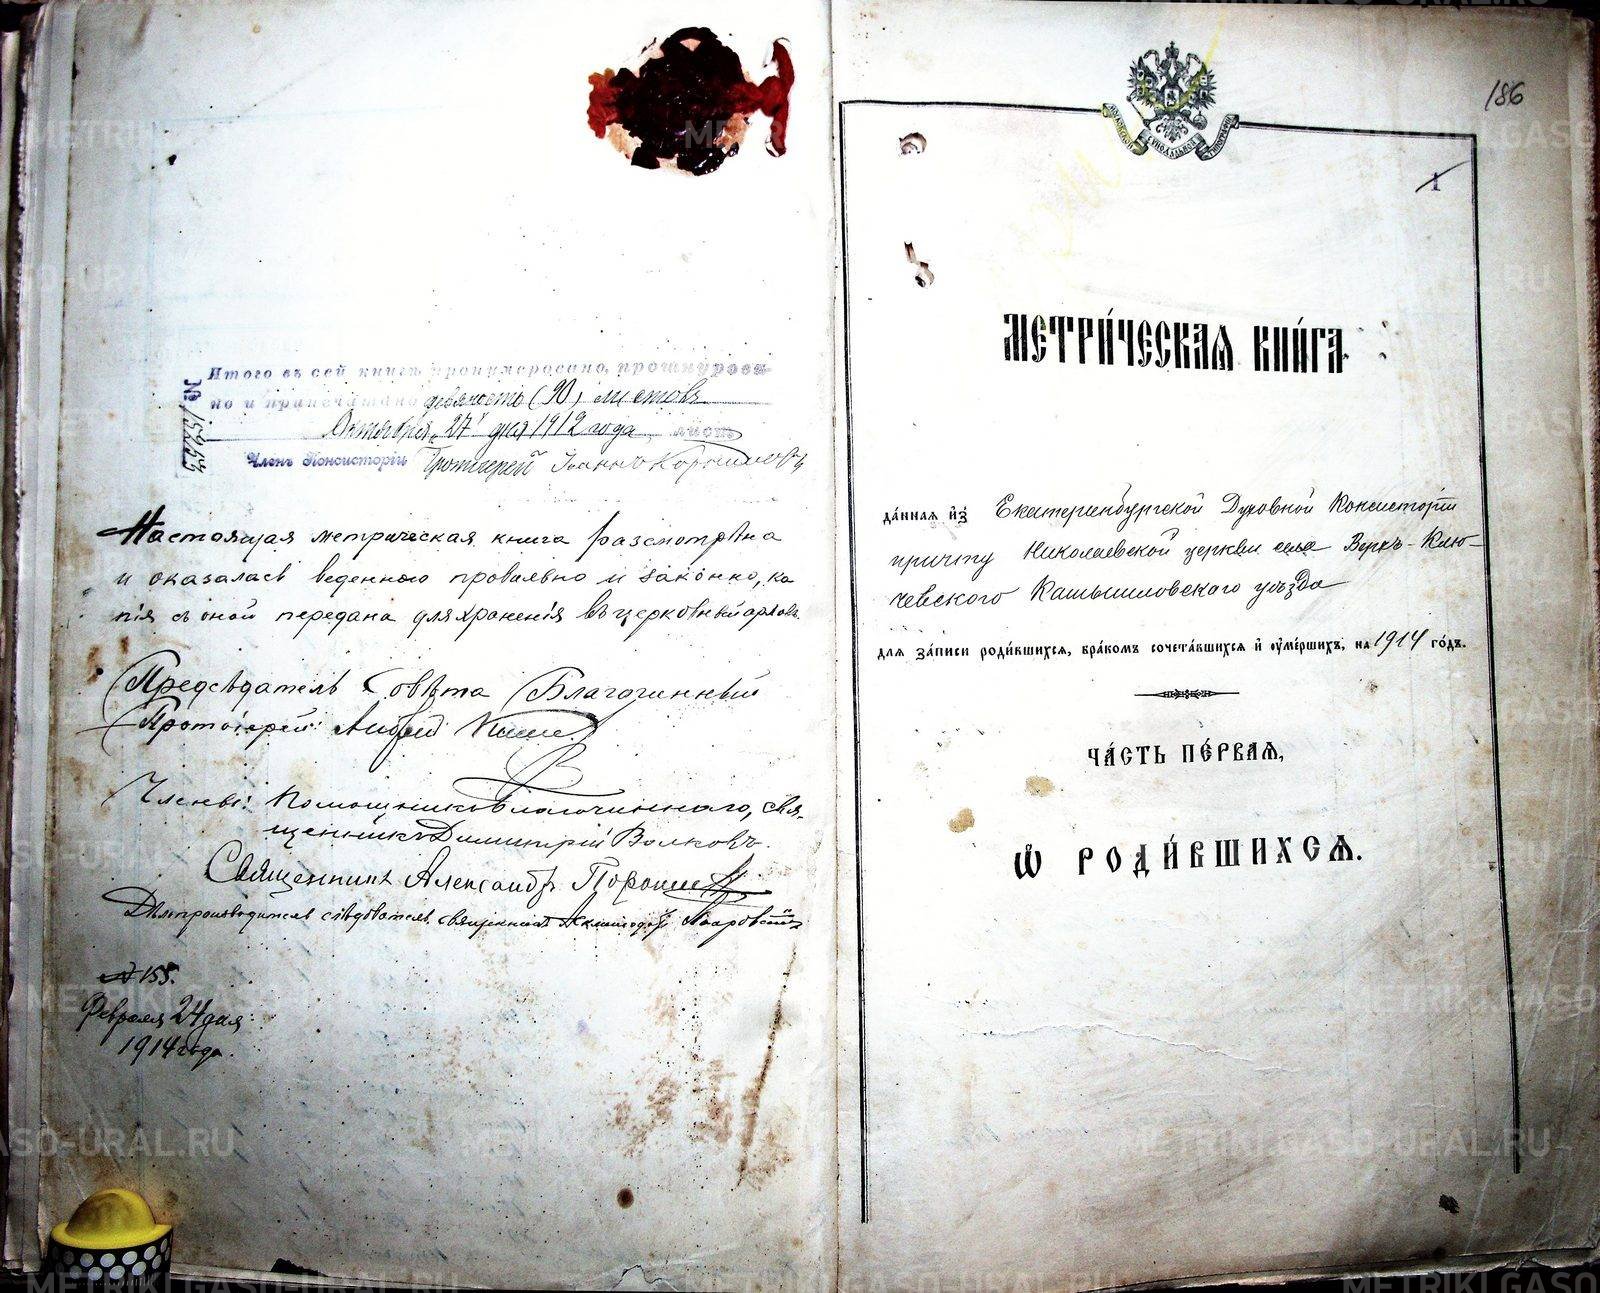 Итого въ сей книгѣ пронумеровано, прошнуров-
но и припечатано девяносто (90) листовъ
Октября „27" дня 1912 года листъ
Членъ Консисторіи Протоіерей Іоаннъ
№ 15253
Настоящая метрическая книга разсмотрѣна
и оказалась веденною правильно и законно, ко
пія съ оной передана для храненія въ церковный архивъ.
Предсѣдатель Совѣта Благочинный
Протоіерей: Андрей
Члены: Помощникъ Благочиннаго, свя-
щенникъ Димитрій Волковъ.
Священникъ Александръ
Дѣлопроизводитель слѣдователь священникъ
№ 155.
Февраля 24 дня
1914 года.
186
1
МОСКОВСКОЙ СѴНОДАЛЬНОЙ ТИПОГРАФІИ
МЕТРИ́ЧЕСКАѦ КНИ́ГА
да́ннаѧ и҆з̾ Екатеринбургской Духовной Консисторіи
причту Николаевской церкви села Верхъ-Клю-
чевского Камышловскаго уѣзда
длѧ за́писи роди́вшихсѧ, бра́комъ сочета́вшихсѧ и҆ оу҆ме́ршихъ, на 1914 го́дъ.
ЧА́СТЬ ПЕ́РВАѦ,
Ѡ҆ РОДИ́ВШИХСѦ.
METRIKI.GASO-URAL.RU